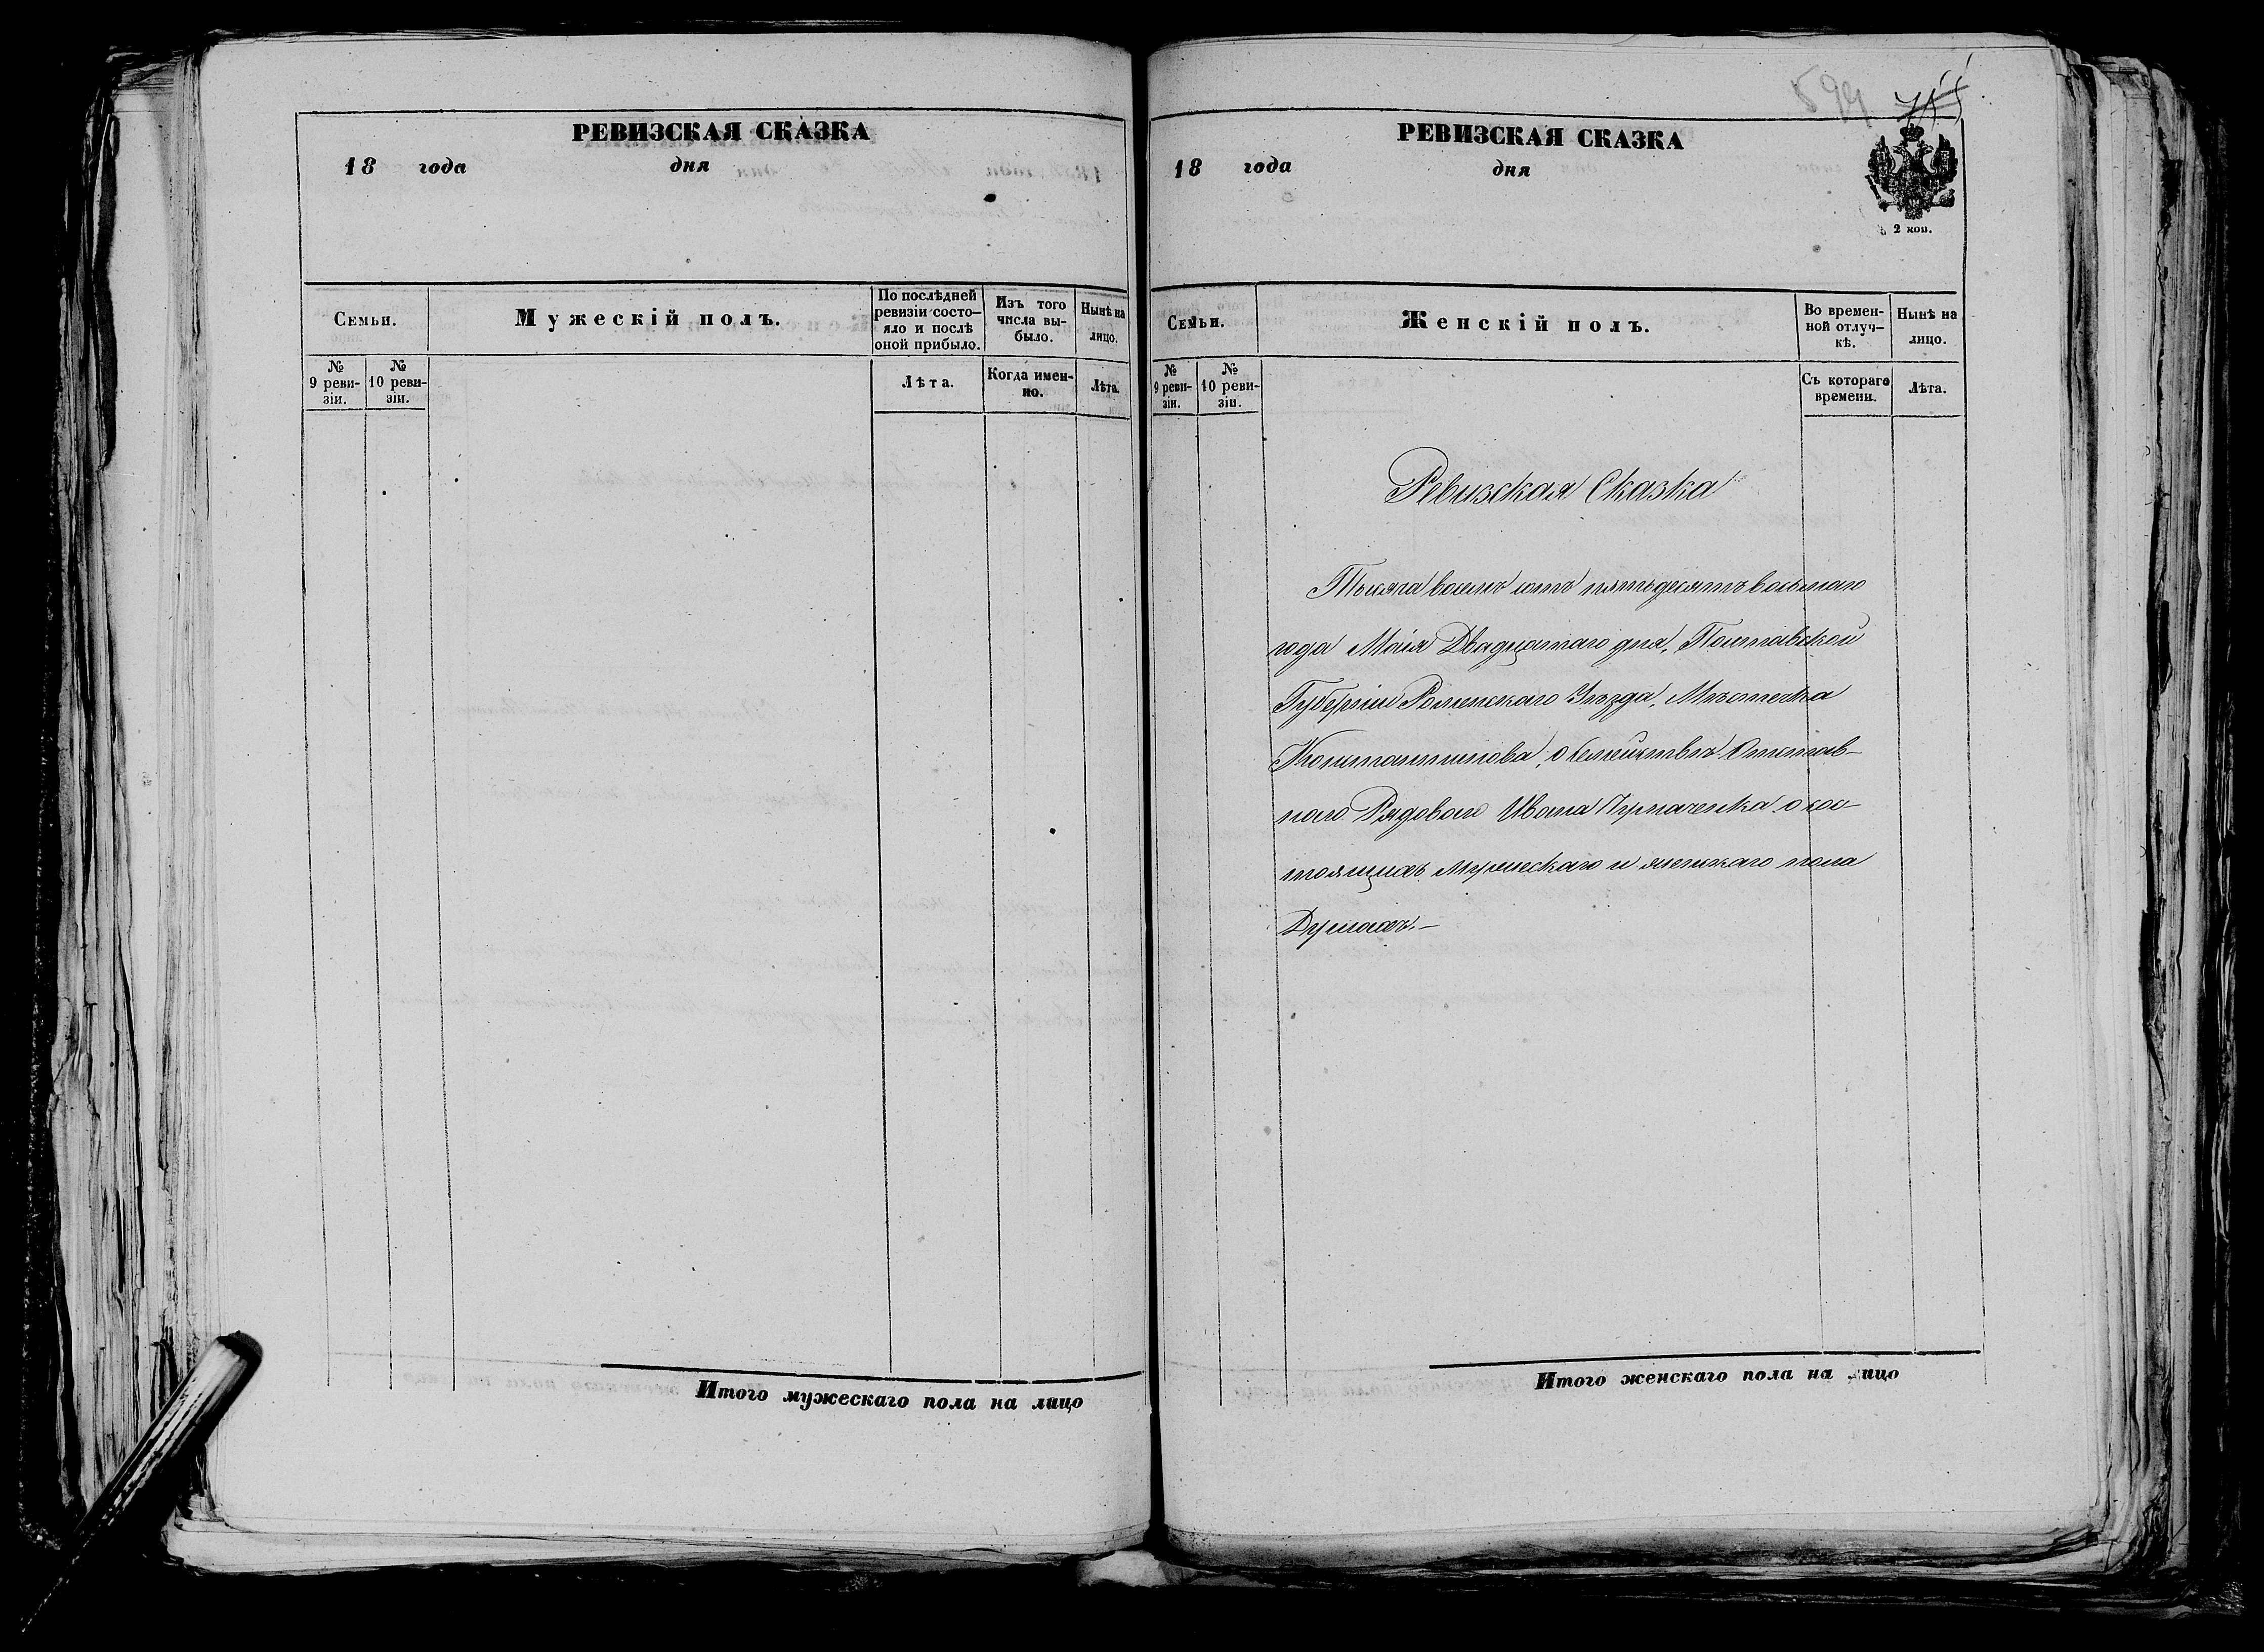 РЕВИЗСКАЯ СКАЗКА
18 года дня
Семьи.
Мужескій полъ.
По послѣдней ревизіи состо-
яло и послѣ оной прибыло.
Изъ того числа вы-
было.
Нынѣ на лицо.
№ 9 реви-
зіи.
№ 10 реви-
зіи.
Лѣта.
Когда имен-
но.
Лѣта.
Итого мужескаго пола на лицо
594
РЕВИЗСКАЯ СКАЗКА
18 года дня
2 коп.
Семьи.
Женскій полъ.
Во времен-
ной отлуч-
кѣ.
Нынѣ на лицо.
№ 9 реви-
зіи.
№ 10 реви-
зіи.
Съ котораго времени.
Лѣта.
Ревизская Сказка
Тысяча восемъ сотъ пятьдесятъ восьмаго
года Маія Двадцатаго дня, Полтавской
Губерніи Роменскаго Уѣзда, Мѣстечка
Константинова, о Семействѣ Отстав-
наго Рядоваго Ивана о сос-
тоящихъ мужескаго и женскаго пола
Душахъ.—
Итого женскаго пола на лицо